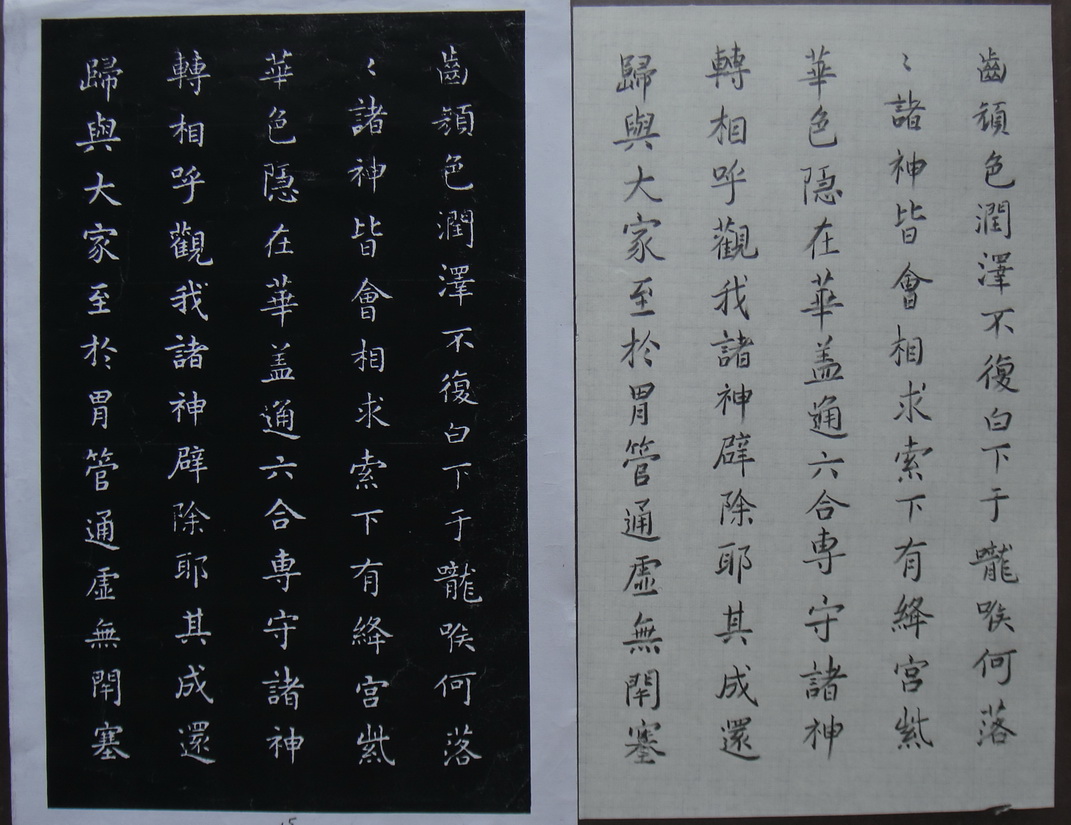 齒顔色潤澤不復白下于嚨喉何落
〻諸神皆會相求索下有絳宮紫
華色隱在華盖通六合専守諸神
轉相呼觀我諸神辟除耶其成還
歸與大家至於胃管通虛無閇塞
齒顔色潤澤不復白下于嚨喉何落
〻諸神皆會相求索下有絳宮紫
華色隱在華盖通六合専守諸神
轉相呼觀我諸神辟除耶其成還
歸與大家至於胃管通虛無閇塞